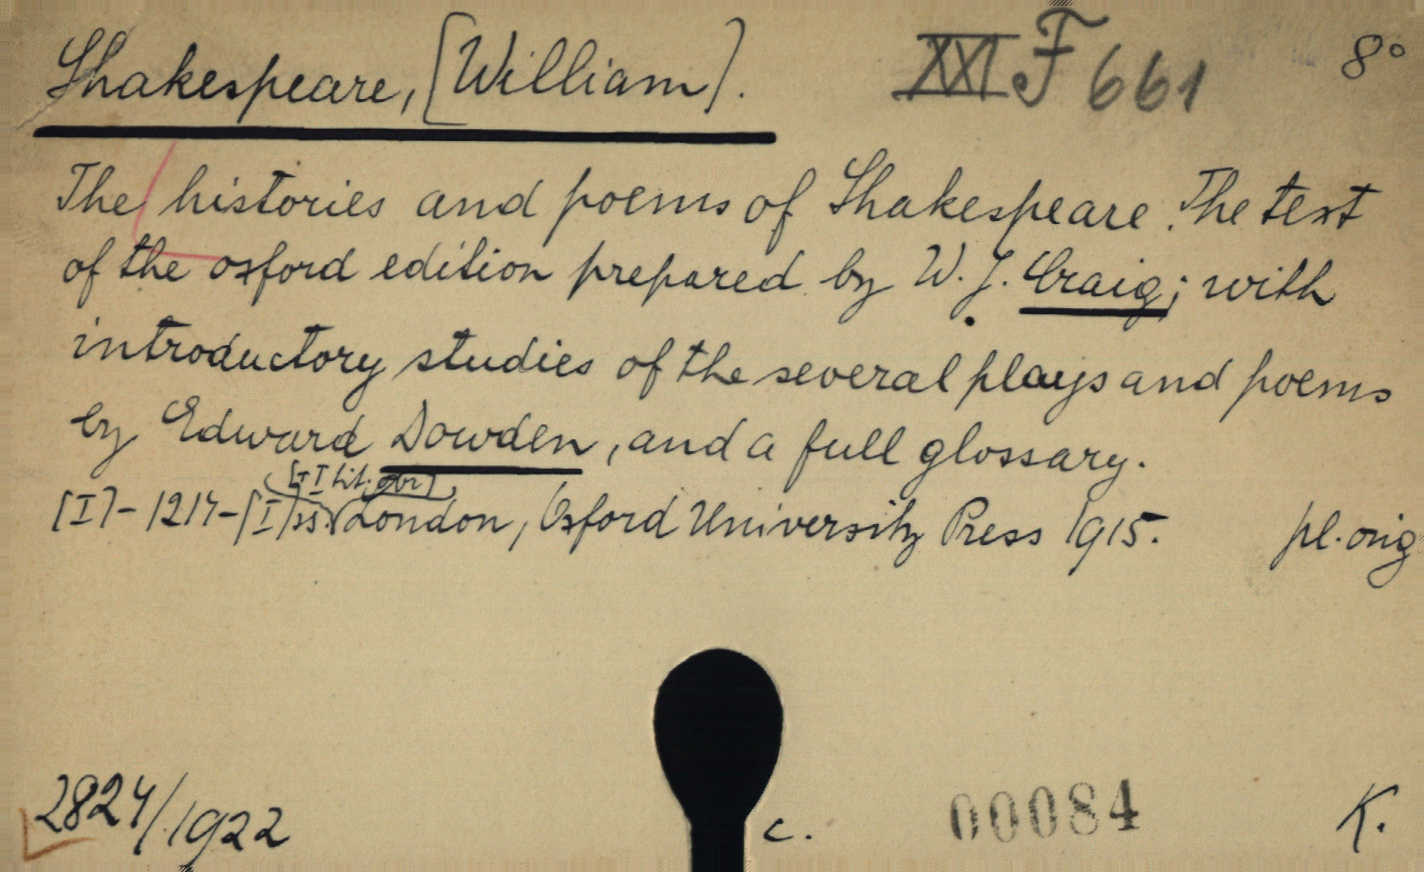 Shakespeare, [William]. XXI F 661 8°
The histories and poems of Shakespeare. The text
of the oxford edition prepared by W. J. Craig; with
introductory studies of the several plays and poems
by Edward Dowden, and a full glossary.
[+ I tit. ]
[I]- 1214-[I] ss. London, Oxford University Press 1915. pl. orig
2824/1922 c. 00084 K.